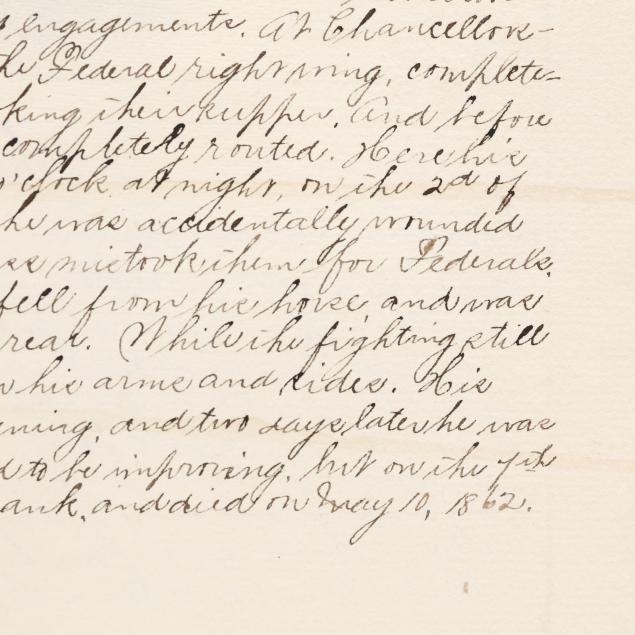 engagements. At Chancellors-
the Federal right wing, complete-
king their supper. And before
completely routed. Here his
o'clock at night, on the 2d of
he was accidentally wounded
ss mistook them for Federals.
fell from his horse, and was
rear. While the fighting still
his arms and sides. His
ening, and two days later he was
d to be improving, but on the 7th
ank, and died on May 10, 1862.